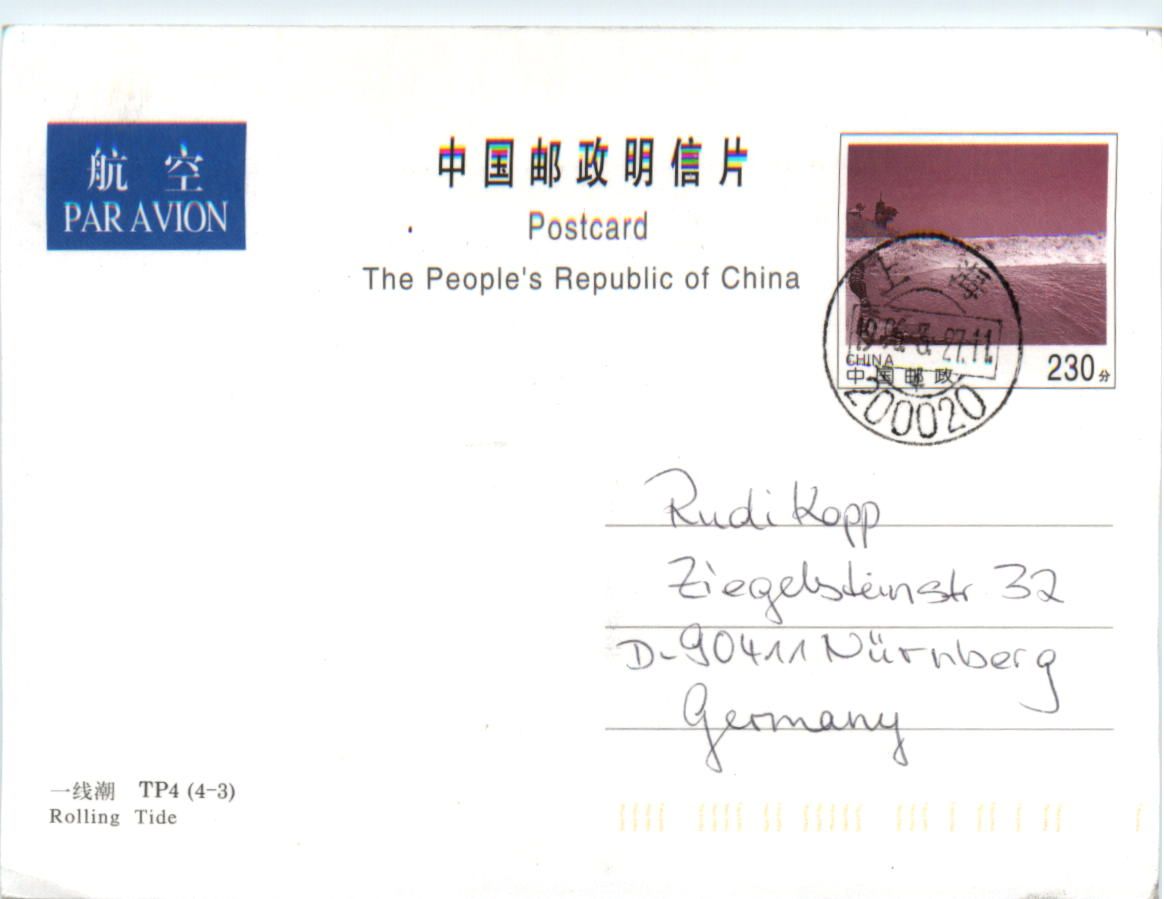 航 空
PAR AVION
中国邮政明信片
Postcard
The People's Republic of China
上海
CHINA
中国邮政
230分
200020
Rudi Kopp
Ziegelsteinstr 32
D-90411 Nürnberg
Germany
一线潮 TP4 (4-3)
Rolling Tide